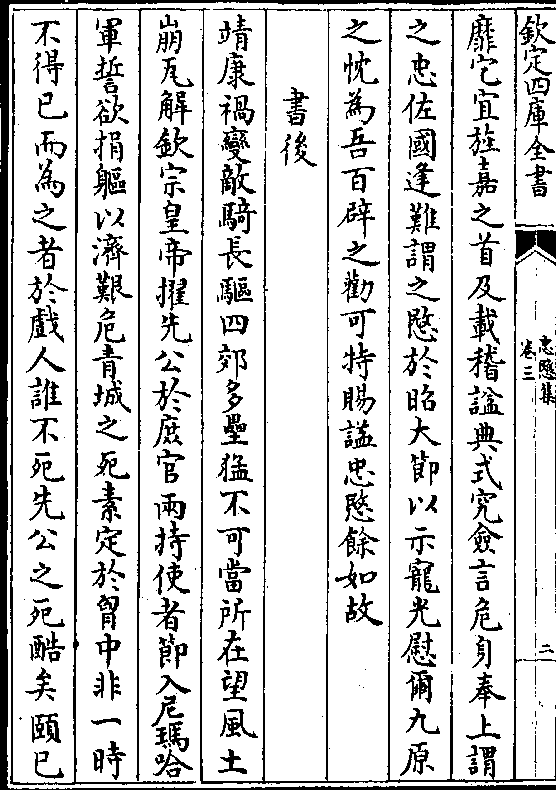 欽定四庫全書
忠愍集
卷三
二
靡它宜旌嘉之首及載稽諡典式究僉言危身奉上謂
之忠佐國逢難謂之愍於昭大節以示寵光慰爾九原
之忱為吾百辟之勸可特賜諡忠愍餘如故
書後
靖康禍變敵騎長驅四郊多壘猛不可當所在望風土
崩瓦解欽宗皇帝擢先公於庶官兩持使者節入尼瑪哈
軍誓欲捐軀以濟艱危青城之死素定於胷中非一時
不得已而為之者於戲人誰不死先公之死酷矣頤已